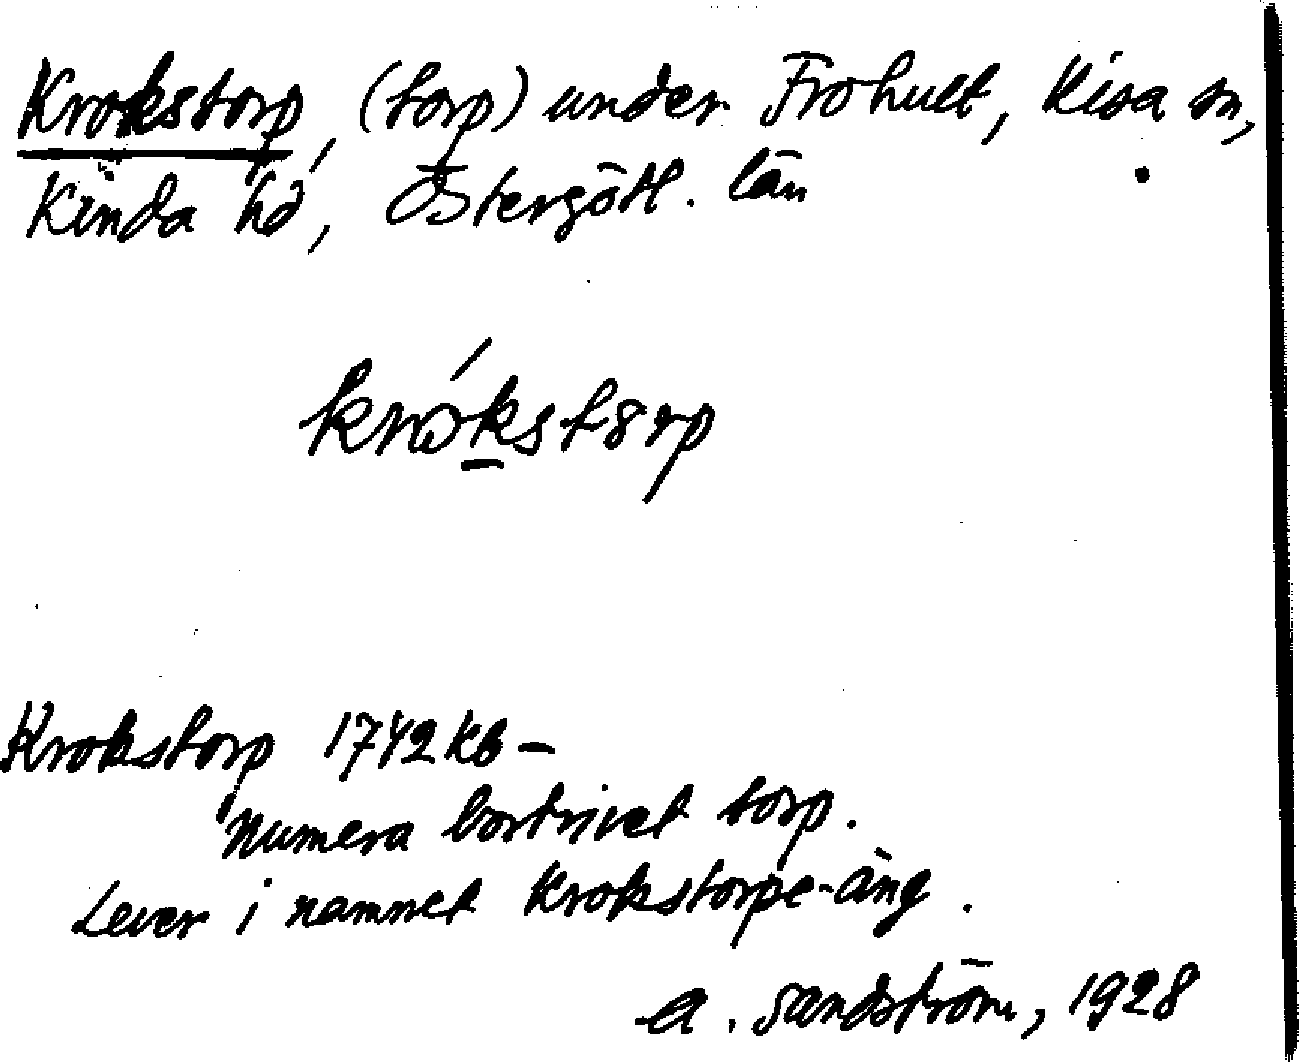 Krokstorp, (torp) under Frohult, Kisa sn,
Kinda hd, Östergötl. län
krókst8rp
Krokstorp 1742 kb –
Numera bortrivet torp.
Lever i namnet Krokstorpe-äng.
A. Sandström, 1928